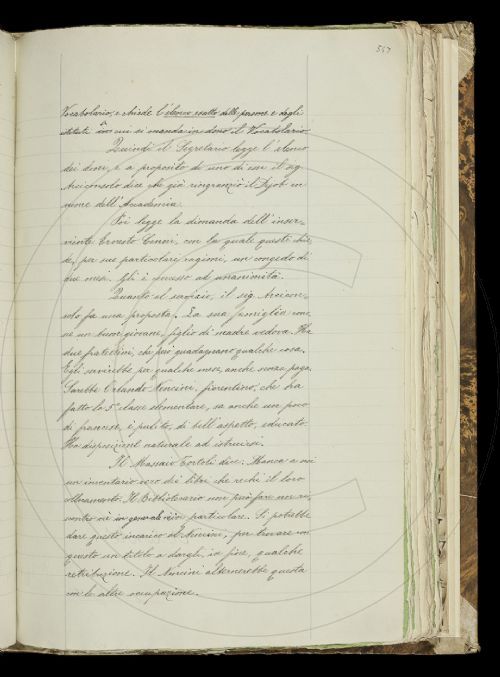 Vocabolario, e chiede l'elenco esatto delle persone e degli
istituti cui si manda in dono il Vocabolario
Quindi il Segretario legge l'elenco
dei doni, e a proposito di uno di essi il sig.
Arciconsolo dice che già ringraziò il in
nome dell'Accademia.
Poi legge la dimanda dell'inser-
viente Ernesto con la quale questi chie
de, per sue particolari ragioni, un congedo di
due mesi. Gli è concesso ad unanimità.
Quanto al servizio, il sig. Arcicon,
solo fa una proposta. La sua famiglia conosce
un buon giovane, figlio di madre vedova. Ha
due fratellini, che però guadagnano qualche cosa.
Egli servirebbe per qualche mese, anche senza paga.
Sarebbe Orlando Nencini, fiorentino, che ha
fatto la 5ª classe elementare, sa anche un poco
di francese, è pulito, di bell'aspetto, educato.
Ha disposizioni naturale ad istruirsi.
Il Massaio Tortoli dice: Manca a noi
un inventario vero dei libri che rechi il loro
collocamento. Il Bibliotecario non può fare un ri,
scontro nè in generale nè in particolare. Si potrebbe
dare questo incarico al Nencini, per trovare con
questo un titolo a dargli, in fine, qualche
retribuzione. Il Nencini alternerebbe questa
con le altre occupazione.